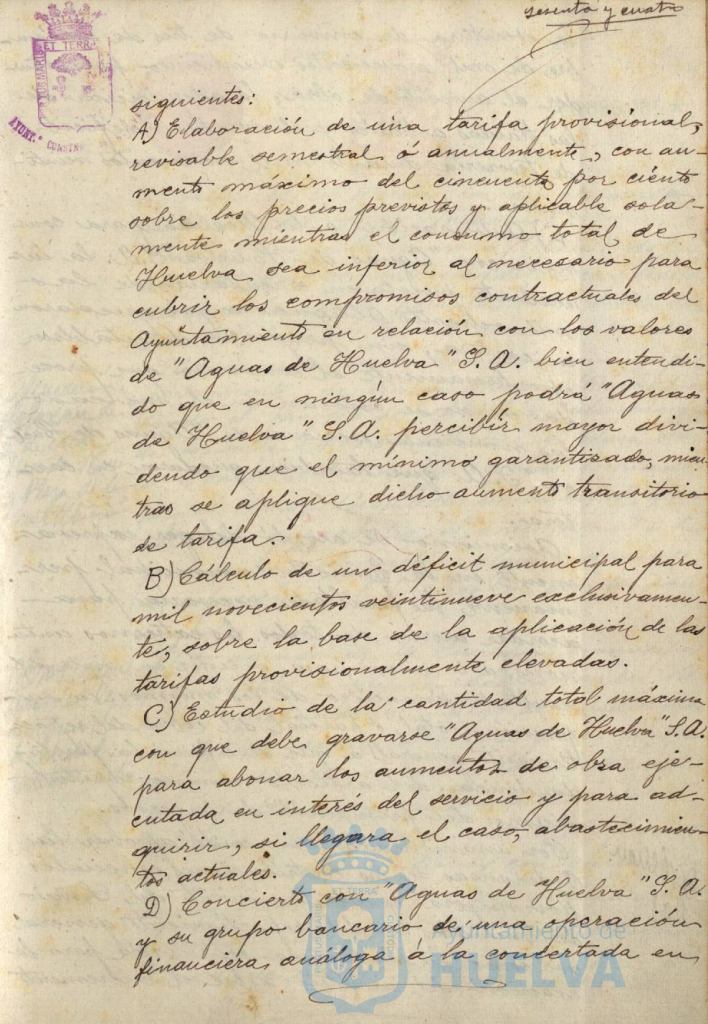 sesenta y cuatro
ET TERRAE
AYUNT.º CONSTN
siguientes:
A) Elaboración de una tarifa provisional,
revisable semestral ó anualmente, con au-
mento máximo del cincuenta por ciento
sobre los precios previstos y aplicable sola-
mente mientras el consumo total de
Huelva sea inferior al necesario para
cubrir los compromisos contractuales del
Ayuntamiento en relación con los valores
de "Aguas de Huelva" S.A. bien entendi-
do que en ningún caso podrá "Aguas
de Huelva" S.A. percibir mayor divi-
dendo que el mínimo garantizado, mien-
tras se aplique dicho aumento transitorio
de tarifa.
B) Cálculo de un déficit municipal para
mil novecientos veintinueve exclusivamen-
te, sobre la base de la aplicación de las
tarifas provisionalmente elevadas.
C) Estudio de la cantidad total máxima
con que debe gravarse "Aguas de Huelva" S.A.
para abonar los aumentos de obra eje-
cutada en interés del servicio y para ad-
quirir, si llegara el caso, abastecimien-
tos actuales.
D) Concierto con "Aguas de Huelva" S.A.
y su grupo bancario de una operación
financiera análoga á la concertada en
Ayuntamiento de
HUELVA